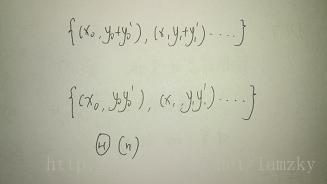 {(x₀, y₀+y₀'), (x₁, y₁+y₁') ....}
{(x₀, y₀y₀'), (x₁, y₁y₁') ....}
Ⓗ (n)
http net/iamzky